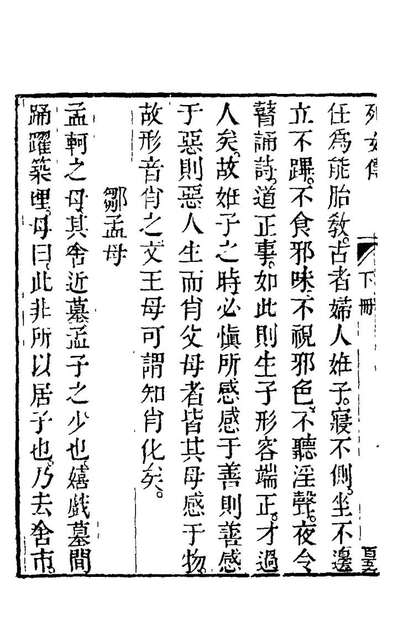 列女傳
下冊
任爲能胎敎。古者婦人姙子。寢不側。坐不邊
立不蹕。不食邪味。不視邪色。不聽淫聲。夜令
瞽誦詩。道正事。如此則生子形容端正。才過
人矣。故姙子之時必愼所感感于善則善感
于惡則惡人生而肖父母者皆其母感于物。
故形音肖之文王母可謂知肖化矣。
鄒孟母
孟軻之母。其舍近墓孟子之少也。嬉戲墓間
踊躍築埋。母曰。此非所以居子也。乃去舍市。